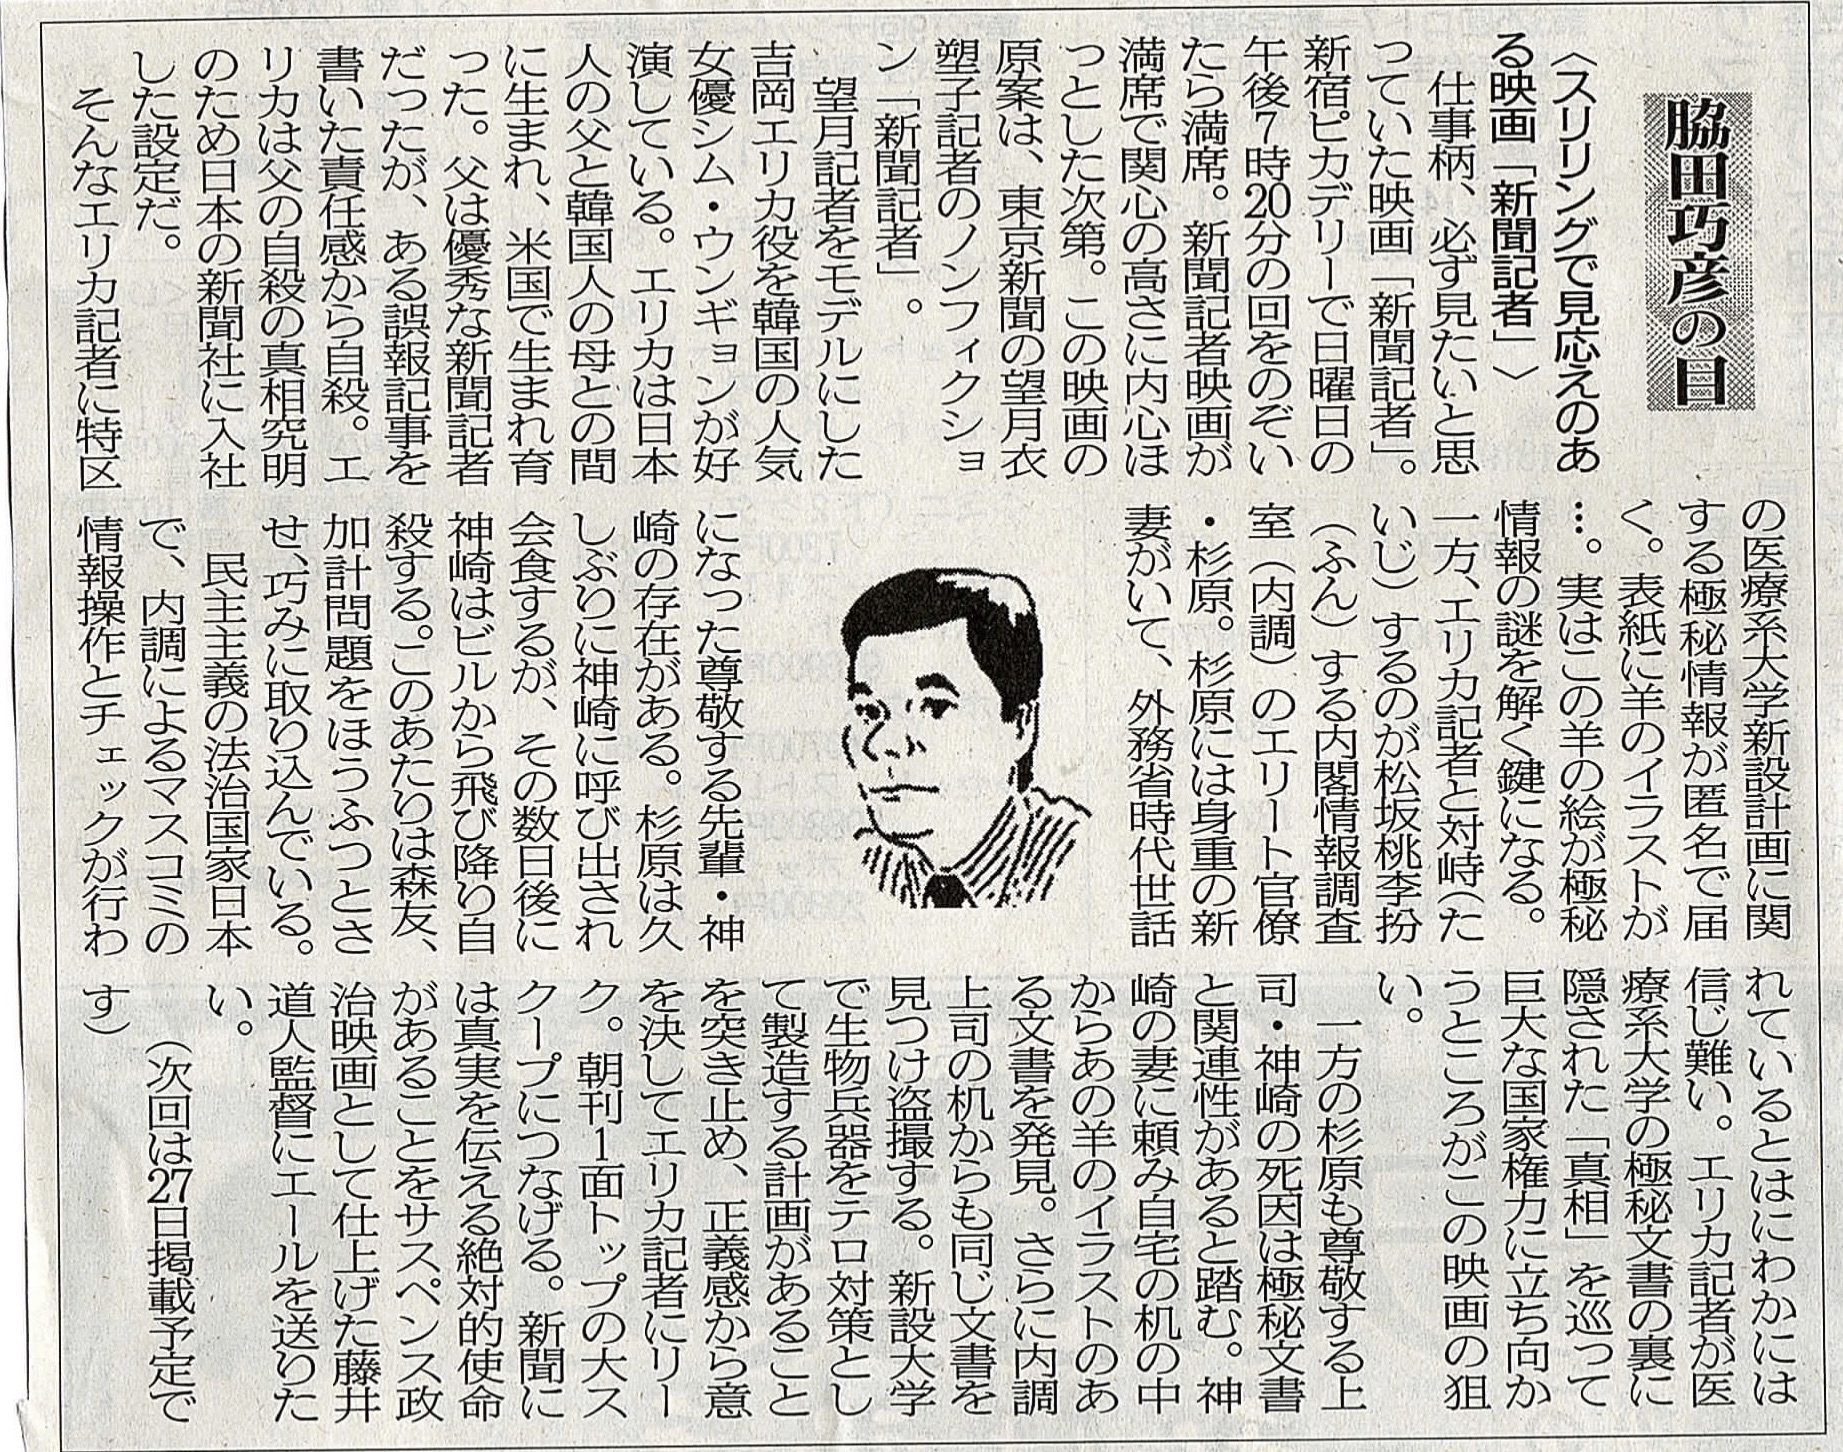 脇田巧彦の目
〈スリリングで見応えのあ
る映画「新聞記者」〉
仕事柄、必ず見たいと思
っていた映画「新聞記者」。
新宿ピカデリーで日曜日の
午後7時20分の回をのぞい
たら満席。新聞記者映画が
満席で関心の高さに内心ほ
っとした次第。この映画の
原案は、東京新聞の望月衣
塑子記者のノンフィクショ
ン「新聞記者」。
望月記者をモデルにした
吉岡エリカ役を韓国の人気
女優シム・ウンギョンが好
演している。エリカは日本
人の父と韓国人の母との間
に生まれ、米国で生まれ育
った。父は優秀な新聞記者
だったが、ある誤報記事を
書いた責任感から自殺。エ
リカは父の自殺の真相究明
のため日本の新聞社に入社
した設定だ。
そんなエリカ記者に特区
の医療系大学新設計画に関
する極秘情報が匿名で届
く。表紙に羊のイラストが
…。実はこの羊の絵が極秘
情報の謎を解く鍵になる。
一方、エリカ記者と対峙(た
いじ)するのが松坂桃李扮
(ふん)する内閣情報調査
室(内調)のエリート官僚
・杉原。杉原には身重の新
妻がいて、外務省時代世話
になった尊敬する先輩・神
崎の存在がある。杉原は久
しぶりに神崎に呼び出され
会食するが、その数日後に
神崎はビルから飛び降り自
殺する。このあたりは森友、
加計問題をほうふつとさ
せ、巧みに取り込んでいる。
民主主義の法治国家日本
で、内調によるマスコミの
情報操作とチェックが行わ
れているとはにわかには
信じ難い。エリカ記者が医
療系大学の極秘文書の裏に
隠された「真相」を巡って
巨大な国家権力に立ち向か
うところがこの映画の狙
い。
一方の杉原も尊敬する上
司・神崎の死因は極秘文書
と関連性があると踏む。神
崎の妻に頼み自宅の机の中
からあの羊のイラストのあ
る文書を発見。さらに内調
上司の机からも同じ文書を
見つけ盗撮する。新設大学
で生物兵器をテロ対策とし
て製造する計画があること
を突き止め、正義感から意
を決してエリカ記者にリー
ク。朝刊1面トップの大ス
クープにつなげる。新聞に
は真実を伝える絶対的使命
があることをサスペンス政
治映画として仕上げた藤井
道人監督にエールを送りた
い。
(次回は27日掲載予定で
す)